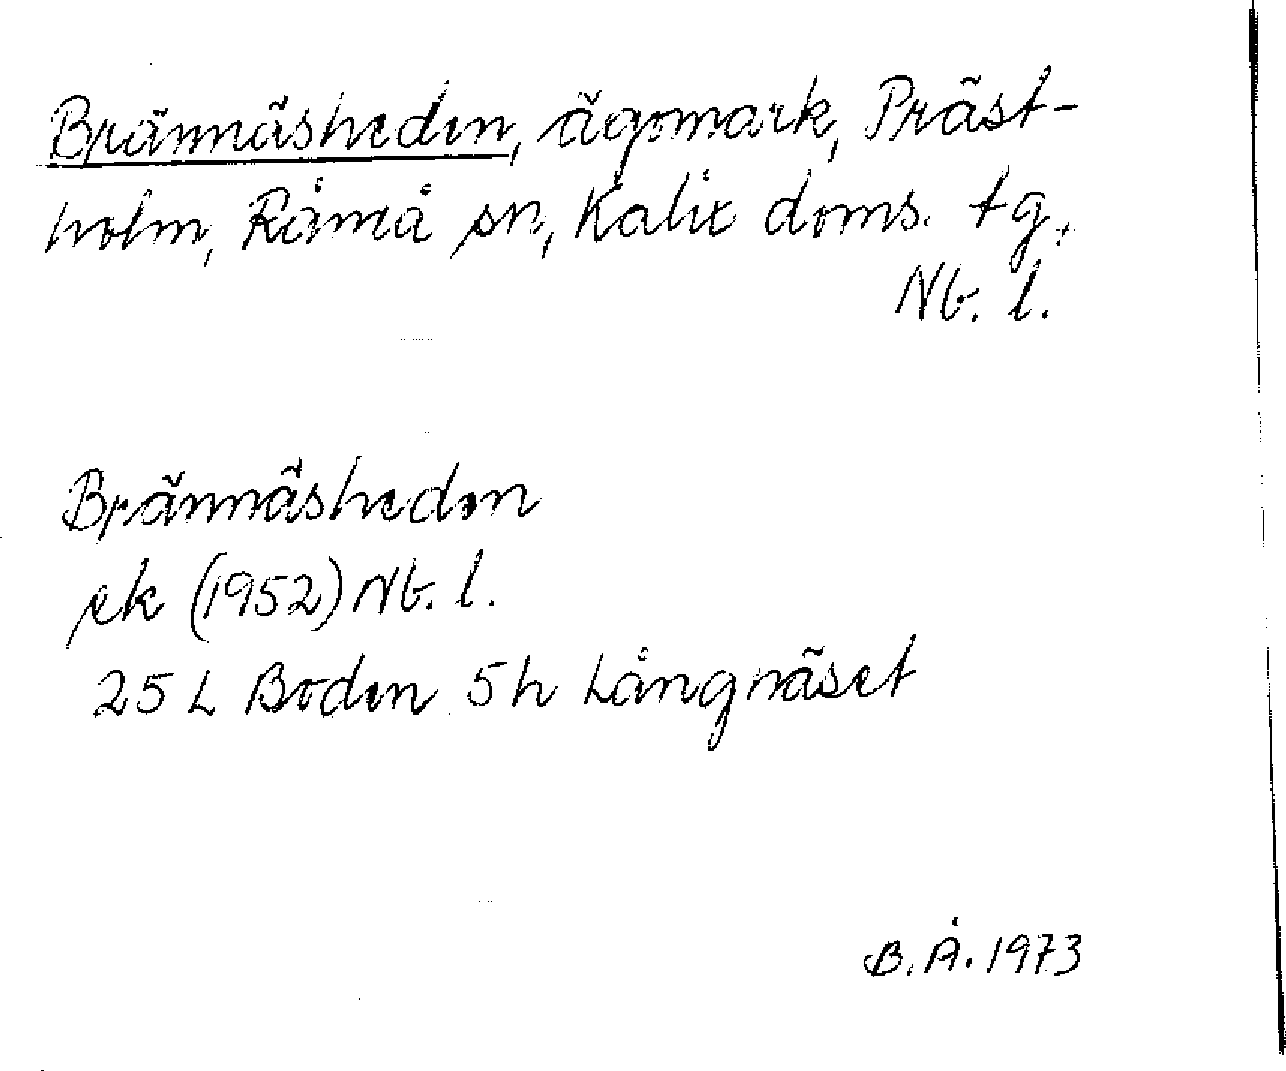 Brännäsheden, ägomark, Präst-
holm, Råneå sn, Kalix doms. tg,
Nb. l.
Brännäsheden
ek (1952) Nb. l.
25 L Boden 5h Långnäset
B. Å. 1973